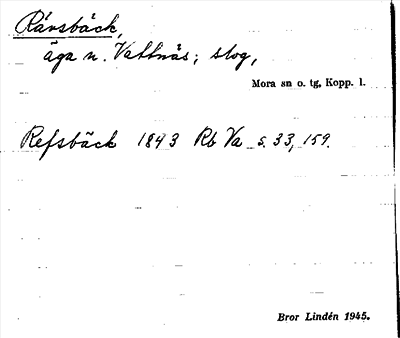 Rävsbäck,
äga n. Vattnäs; skog,
Mora sn o. tg, Kopp. l.
Refsbäck 1843 Rb Va s. 33, 159.
Bror Lindén 1945.